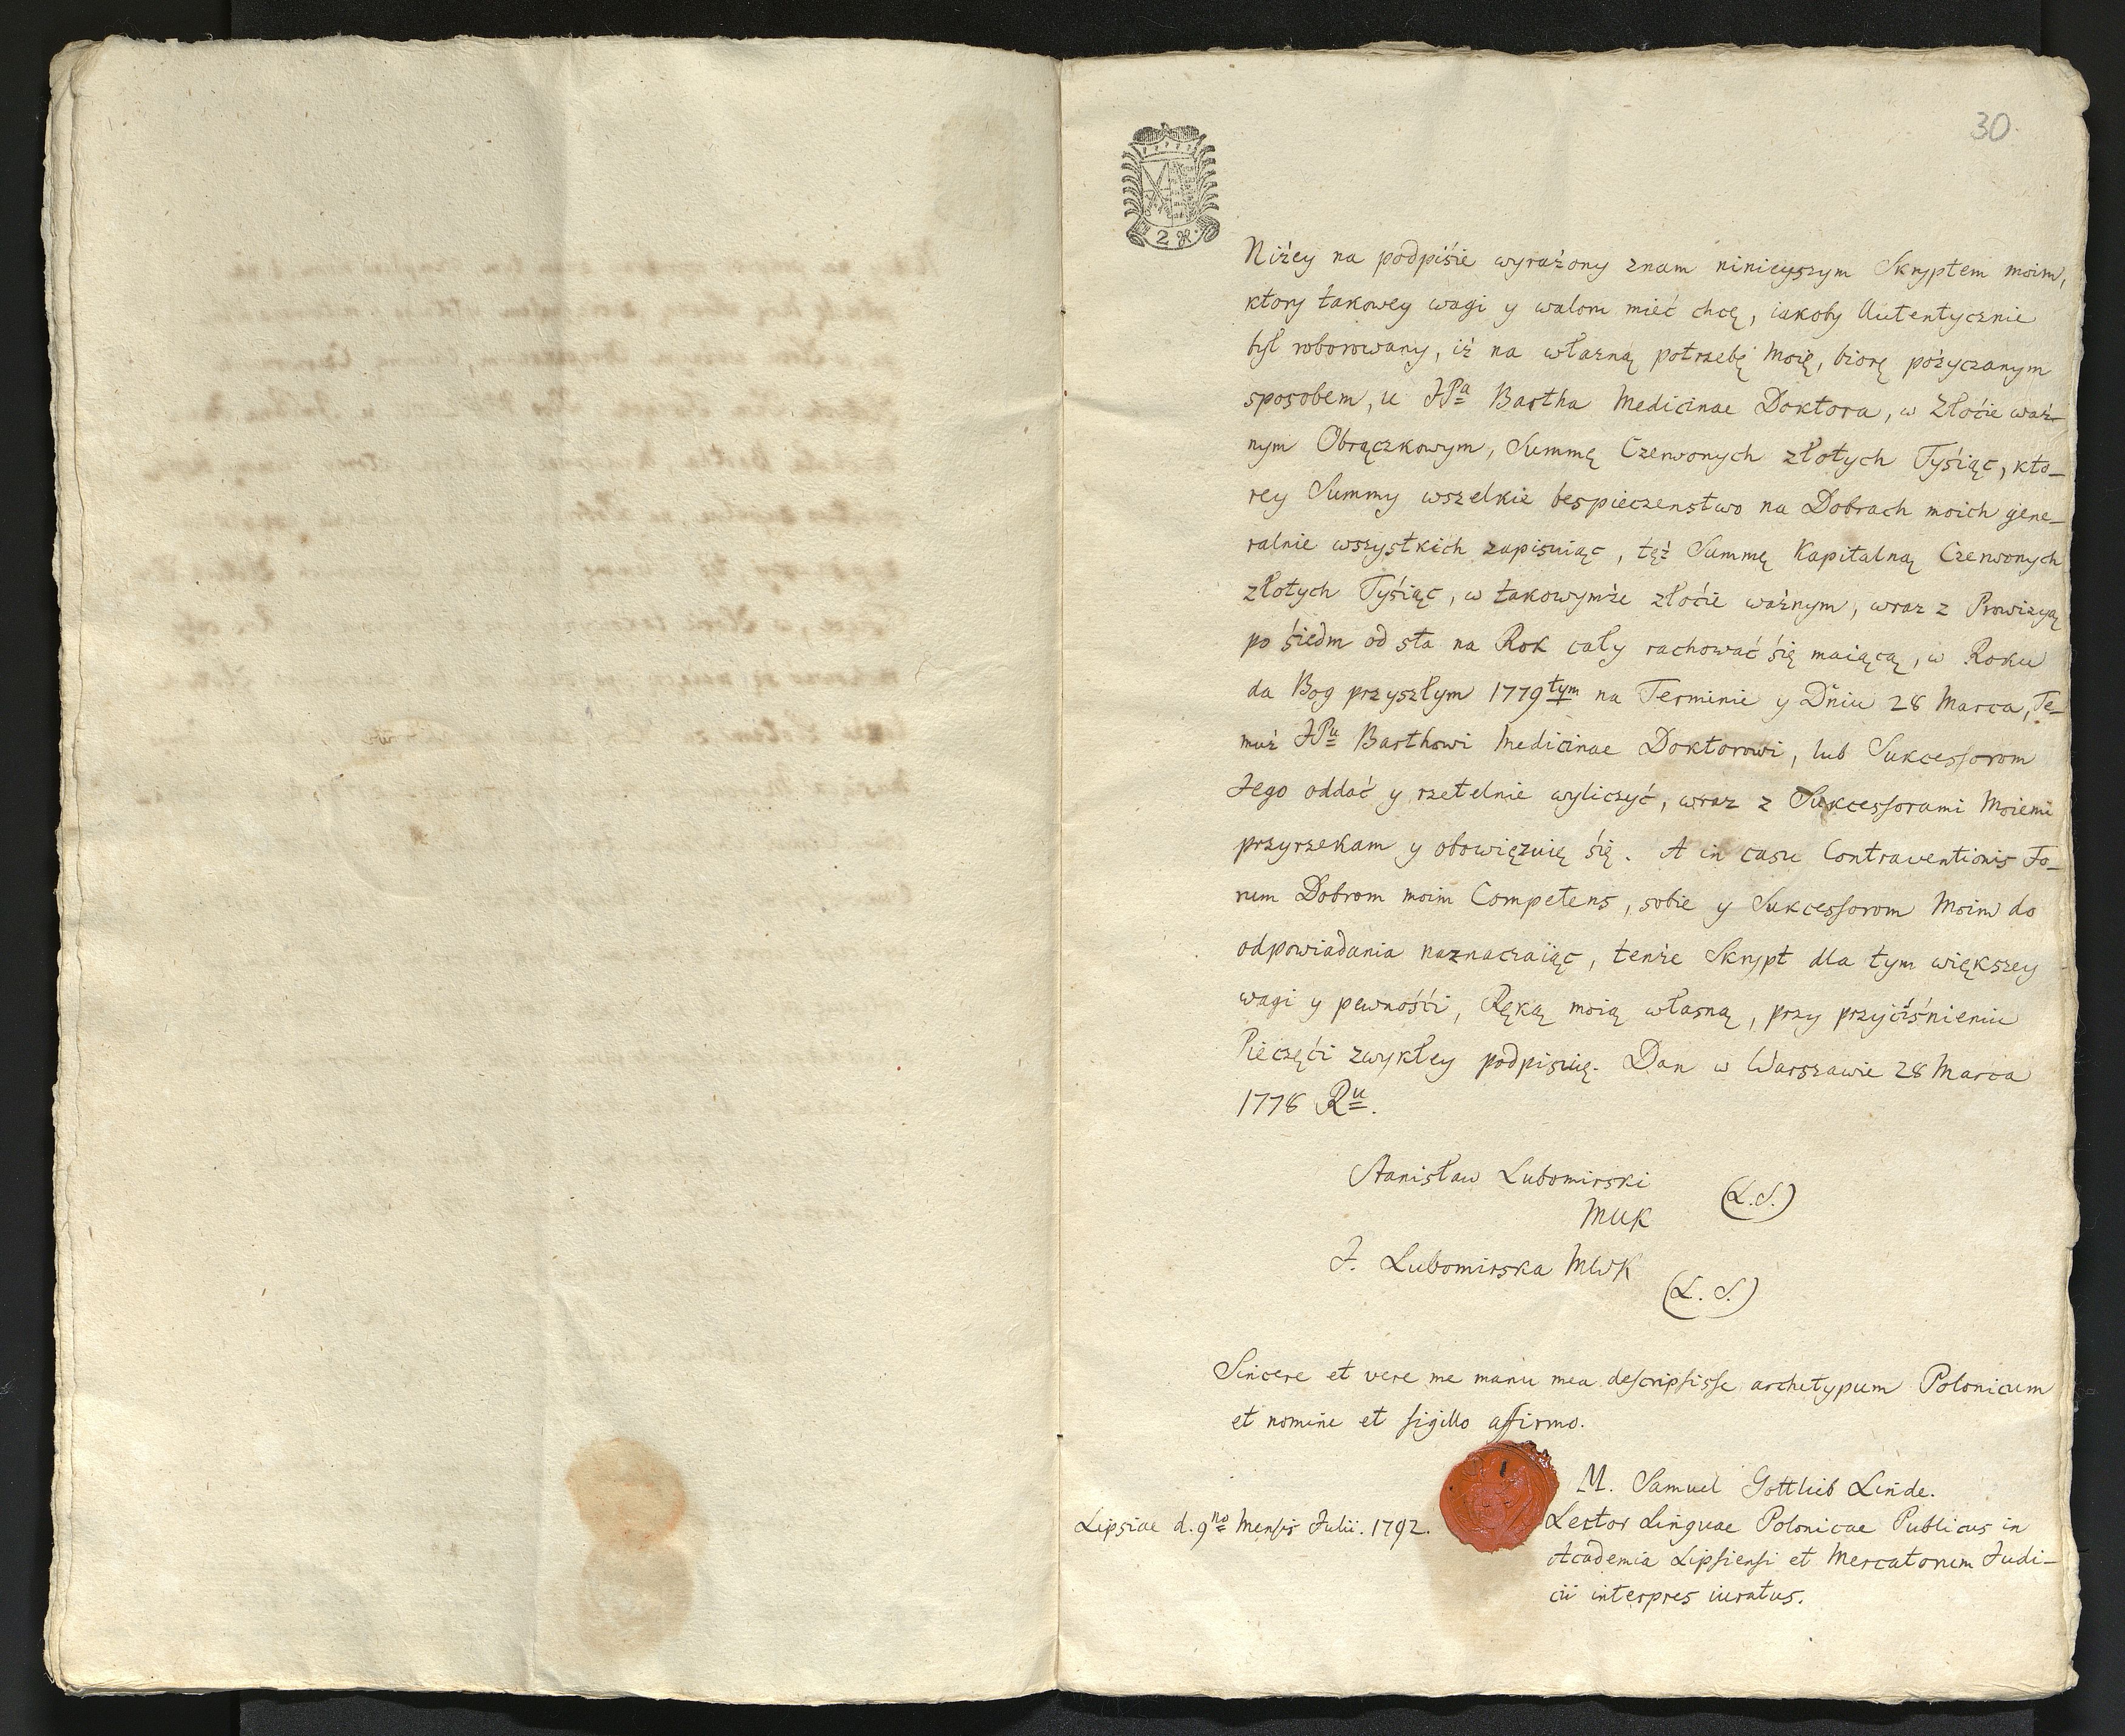 30.
2 
Niżey na podpiśie wyrażony znam ninieyszym Skryptem moim,
ktory takowey wagi y walom mieć chcę, iakoby Autentycznie
był roborowany, iż na własną potrzebę Moię, biorę pożyczanym
sposobem, u JPa Bartha Medicinae Doktora, w Złocie waż-
nym Obrączkowym, Summę Czerwonych złotych Tyśiąc, kto-
rey Summy wszelkie bespieczenstwo na Dobrach moich gene-
ralnie wszystkich zapisuiąc, tęż Summę Kapitalną Czerwonych
złotych Tyśiąc, w takowymże złoćie ważnym, wraz z Prowizyą
po śiedm od sta na Rok cały rachować śię maiącą, w Roku
da Bog przyszłym 1779tym na Terminie y Dniu 28 Marca, Te-
muż JPu Barthowi Medicinae Doktorowi, lub Sukcessorom
Jego oddać y rzetelnie wyliczyć, wraz z Sukcessorami Moiemi
przyrzekam y obowięzuię śię. A in casu Contraventionis Fo-
rum Dobrom moim Competens, sobie y Sukcessorom Moim do
odpowiadania naznaczaiąc, tenże Skrypt dla tym większey
wagi y pewnośći, Ręką moią własną, przy przyćiśnieniu
Pieczęći zwykłey podpisuię. Dan w Warszawie 28 Marca
1778 Ru.
Stanisław Lubomirski
MWK (L.S.)
J. Lubomirska MWK
(L. S.)
Sincere et vere me manu mea descripsisse archetypum Polonicum
et nomine et sigillo affirmo.
M. Samuel Gottlieb Linde.
Lipsiae d. 9no Mensis Julii. 1792. Lector Linguae Polonicae Publicus in
Academia Lipsiensi et Mercatorum Judi-
cii interpres iuratus.